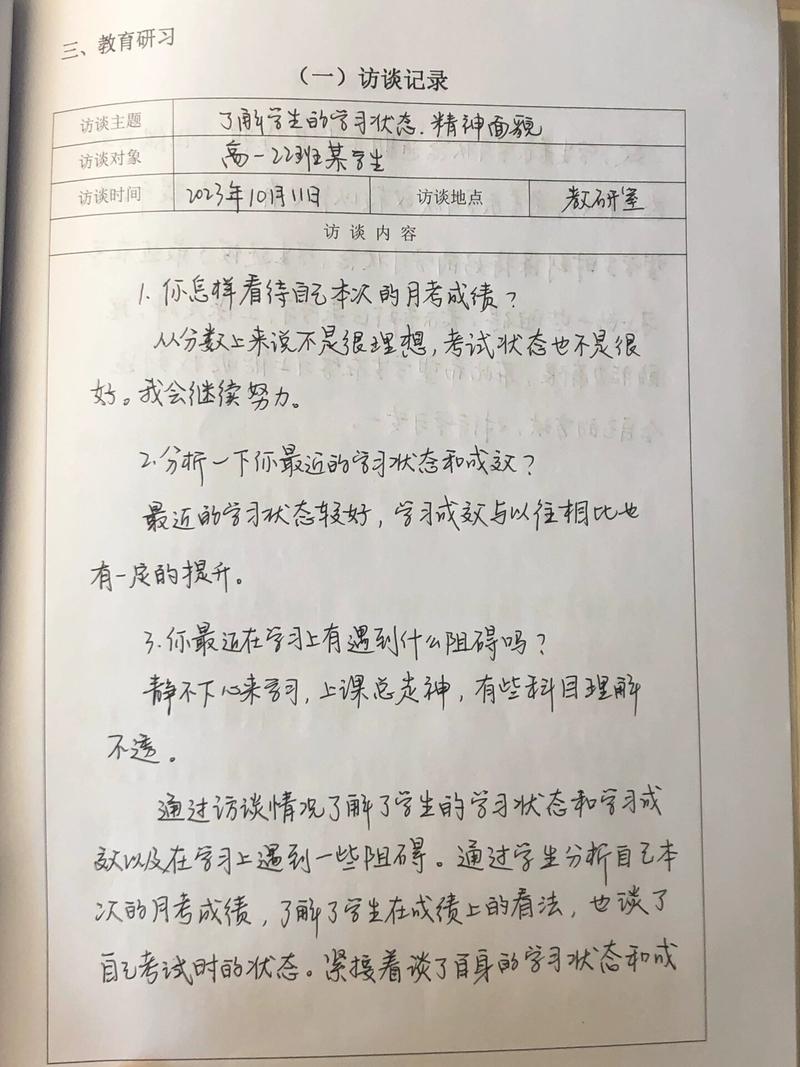 三、教育研习
（一）访谈记录
访谈主题 了解学生的学习状态.精神面貌
访谈对象 高一22班某学生
访谈时间 2023年10月11日 访谈地点 教研室
访谈内容
1. 你怎样看待自己本次的月考成绩？
从分数上来说不是很理想，考试状态也不是很
好。我会继续努力。
2.分析一下你最近的学习状态和成效？
最近的学习状态较好，学习成效与以往相比也
有一定的提升。
3.你最近在学习上有遇到什么阻碍吗？
静不下心来学习，上课总走神，有些科目理解
不透。
通过访谈情况了解了学生的学习状态和学习成
效以及在学习上遇到一些阻碍。通过学生分析自己本
次的月考成绩，了解了学生在成绩上的看法，也谈了
自己考试时的状态。紧接着谈了自身的学习状态和成